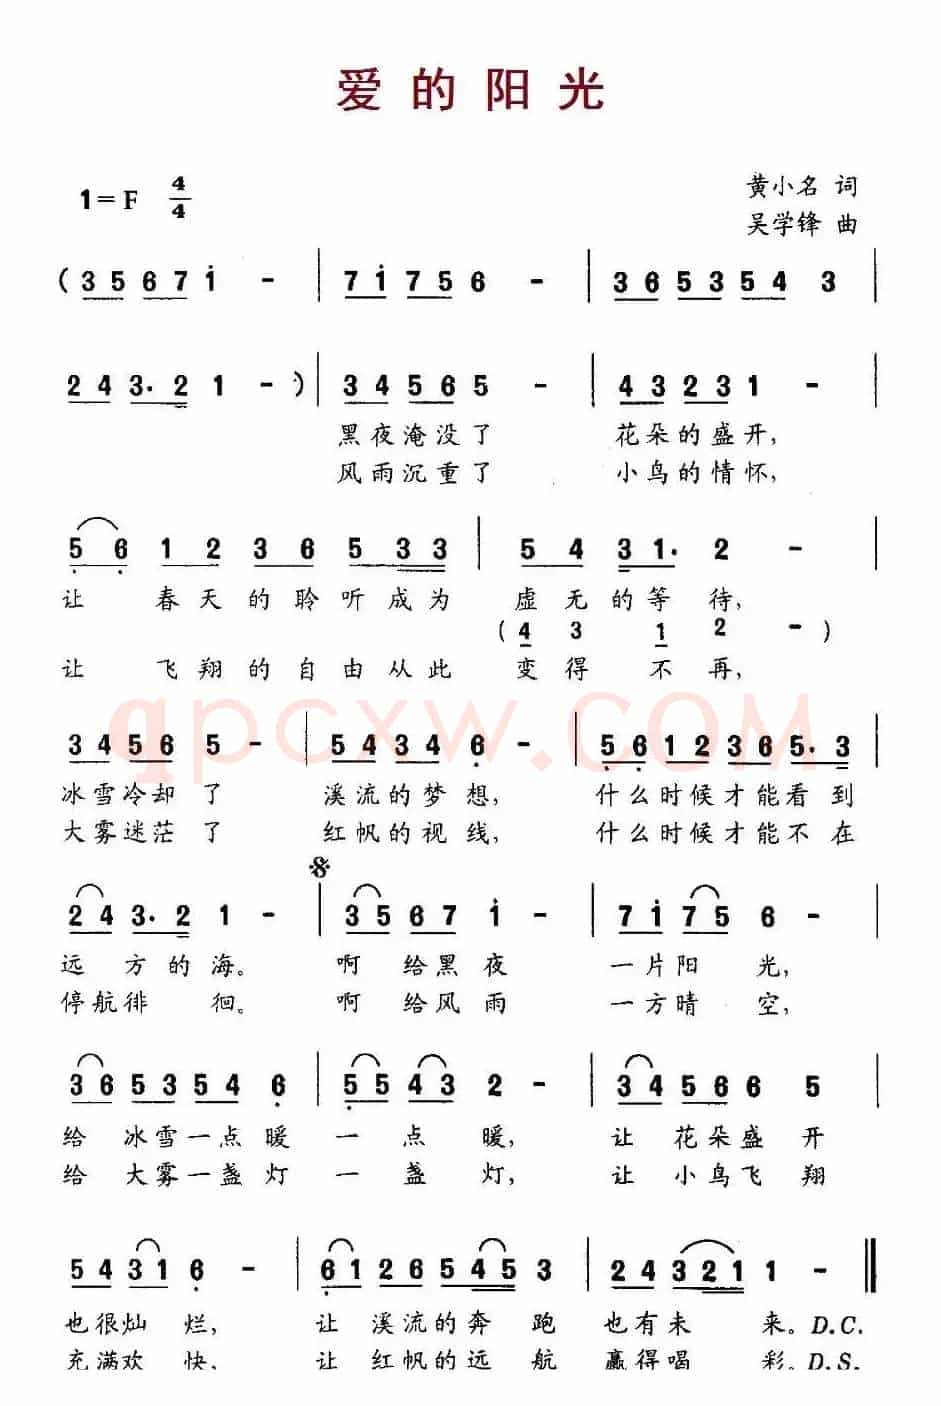 爱的阳光
1=F 4/4
黄小名 词
吴学锋 曲
( 3 5 6 7 i - | 7 i 7 5 6 - | 3 6 5 3 5 4 3 |
2 4 3. 2 1 - ) | 3 4 5 6 5 - | 4 3 2 3 1 - |
黑夜淹没了 花朵的盛开,
风雨沉重了 小鸟的情怀,
5 6 1 2 3 6 5 3 3 | 5 4 3 1. 2 - |
让 春天的聆听成为 虚无的等待,
( 4 3 1 2 - )
让 飞翔的自由从此 变得不再,
qpcxw.COM
3 4 5 6 5 - | 5 4 3 4 6 - | 5 6 1 2 3 6 5. 3 |
冰雪冷却了 溪流的梦想, 什么时候才能看到
大雾迷茫了 红帆的视线, 什么时候才能不在
2 4 3. 2 1 - | 3 5 6 7 i - | 7 i 7 5 6 - |
远方的海。 啊给黑夜 一片阳光,
停航徘徊。 啊给风雨 一方晴空,
3 6 5 3 5 4 6 | 5 5 4 3 2 - | 3 4 5 6 6 5 |
给冰雪一点暖 一点暖, 让花朵盛开
给大雾一盏灯 一盏灯, 让小鸟飞翔
5 4 3 1 6 - | 6 1 2 6 5 4 5 3 | 2 4 3 2 1 1 - ||
也很灿烂, 让溪流的奔跑 也有未来。D.C.
充满欢快, 让红帆的远航 赢得喝彩。D.S.